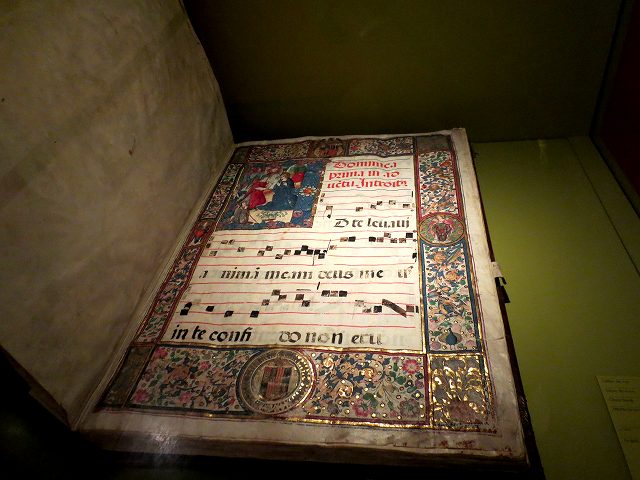 Dominica
prima in ad
uētu. Introitᵘ
D te leuaui
a nimi meam deus me
in te confi do non